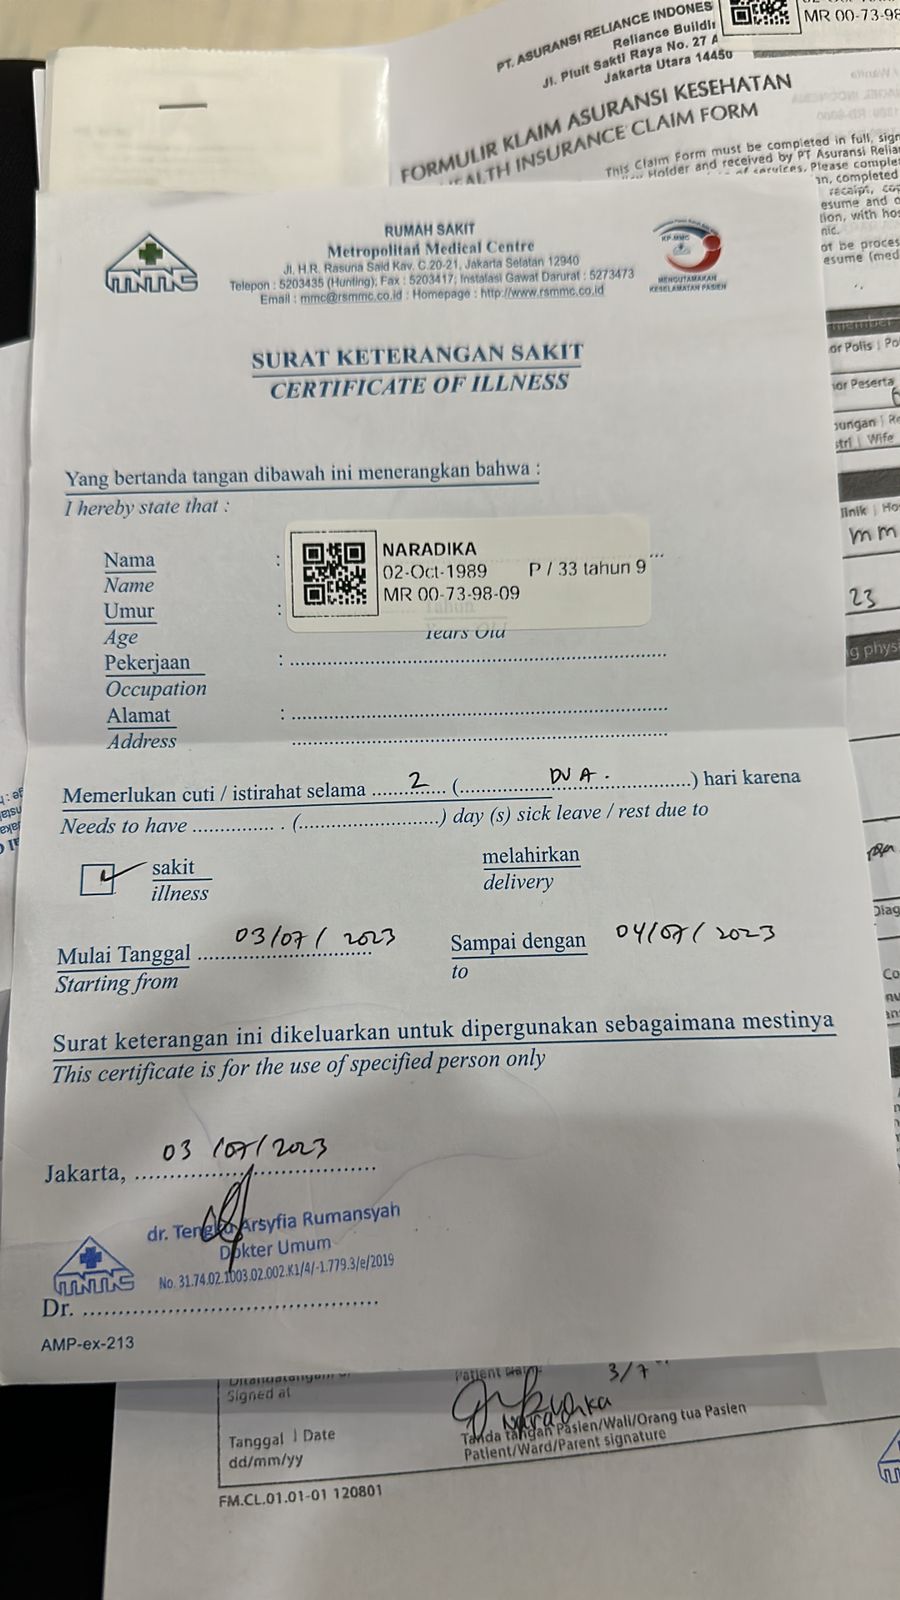 MR 00-73-98
PT. ASURANSI RELIANCE INDONES
Reliance Buildin
Jl. Pluit Sakti Raya No. 27 A
Jakarta Utara 14450
FORMULIR KLAIM ASURANSI KESEHATAN
HEALTH INSURANCE CLAIM FORM
This Claim Form must be completed in full, sign
Holder and received by PT Asuransi Relia
of services. Please complet
an, completed
recaipt, cop
esume and o
tion, with hos
nic.
ot be proces
esume (med
member
or Polis | Po
or Peserta
bungan | Re
stri | Wife
linik | Ho
mm
23
g phys
Diag
RUMAH SAKIT
Metropolitan Medical Centre
Jl. H.R. Rasuna Said Kav. C.20-21, Jakarta Selatan 12940
Telepon : 5203435 (Hunting); Fax : 5203417; Instalasi Gawat Darurat : 5273473
Email : mmc@rsmmc.co.id : Homepage : http://www.rsmmc.co.id
MMC
KP-MMC
MENGUTAMAKAN
KESELAMATAN PASIEN
SURAT KETERANGAN SAKIT
CERTIFICATE OF ILLNESS
Yang bertanda tangan dibawah ini menerangkan bahwa :
I hereby state that :
Nama :
Name
NARADIKA
02-Oct-1989 P / 33 tahun 9
MR 00-73-98-09
Umur : Tahun
Age Years Old
Pekerjaan : ................................................
Occupation
Alamat : ................................................
Address ................................................
Memerlukan cuti / istirahat selama ....2.... (....DUA.....) hari karena
Needs to have ............... (........................) day (s) sick leave / rest due to
sakit melahirkan
illness delivery
Mulai Tanggal 03/07/2023 Sampai dengan 04/07/2023
Starting from to
Surat keterangan ini dikeluarkan untuk dipergunakan sebagaimana mestinya
This certificate is for the use of specified person only
Jakarta, 03/07/2023
dr. Tengku Arsyfia Rumansyah
Dokter Umum
No. 31.74.02.1003.02.002.K1/4/-1.779.3/e/2019
MMC
Dr. ................................................
AMP-ex-213
Signed at
3/7
Naradika
Tanggal | Date
dd/mm/yy
Tanda tangan Pasien/Wali/Orang tua Pasien
Patient/Ward/Parent signature
FM.CL.01.01-01 120801